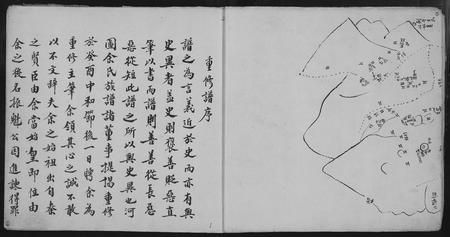 重修譜序
譜之為言義近於史而亦有與
史異者蓋史則褒善貶惡直
筆以書而譜則善善從長惡
惡從短此譜之所以與史異也河
圖余氏族譜諸董事提揭重修
於癸酉中和節後一日將余為
重修主筆余領其心之誠不敢
以不文辭夫余之始祖出自秦
之賢臣由余當始皇即位由
余之後名振魁公因進諫得罪